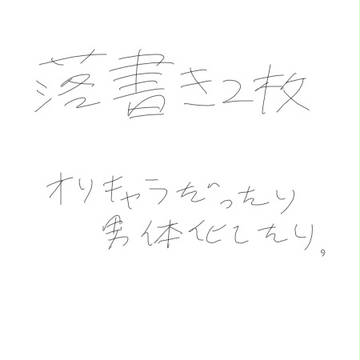 落書き2枚
オリキャラだったり
男体化したり。